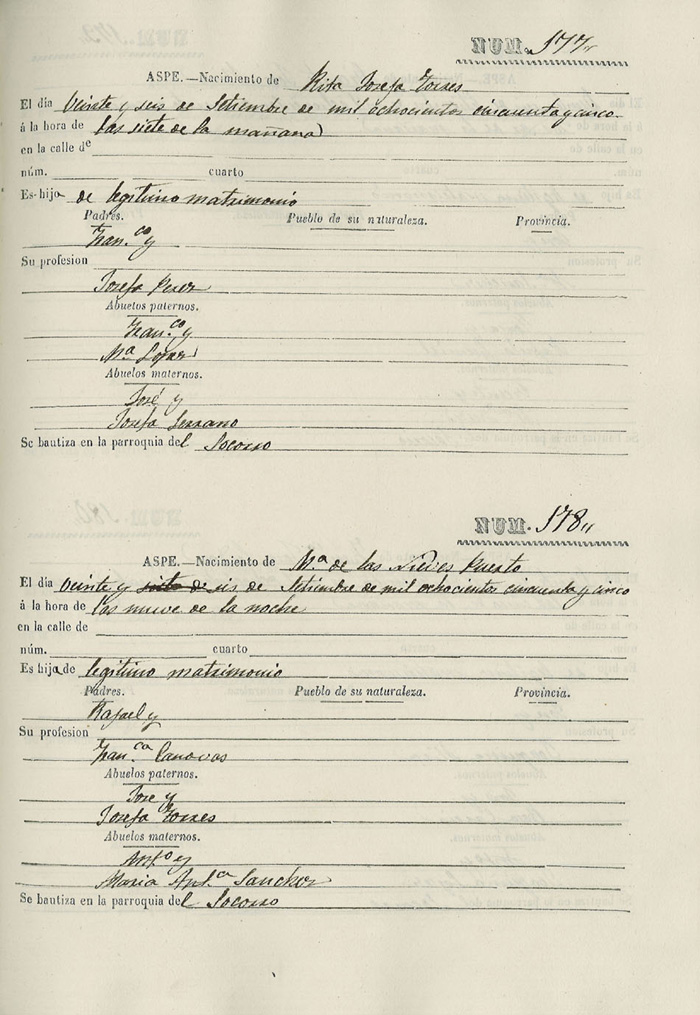 NUM. 177
ASPE.—Nacimiento de Rita Josefa Torres
El dia Veinte y seis de Setiembre de mil ochocientos cincuenta y cinco
á la hora de las siete de la mañana
en la calle de
núm. cuarto
Es hija de legitimo matrimonio
Padres. Pueblo de su naturaleza. Provincia.
Fran.co y
Su profesion
Josefa Perez
Abuelos paternos.
Fran.co y
M.a Lopez
Abuelos maternos.
José y
Josefa Serrano
Se bautiza en la parroquia del Socorro
NUM. 178
ASPE.—Nacimiento de M.a de las Nieves Puerto
El dia veinte y siete de seis de Setiembre de mil ochocientos cincuenta y cinco
á la hora de las nueve de la noche
en la calle de
núm. cuarto
Es hija de legitimo matrimonio
Padres. Pueblo de su naturaleza. Provincia.
Rafael y
Su profesion
Fran.ca Canovas
Abuelos paternos.
Jose y
Josefa Torres
Abuelos maternos.
Ant.o y
Maria Ant.ca Sanchez
Se bautiza en la parroquia del Socorro